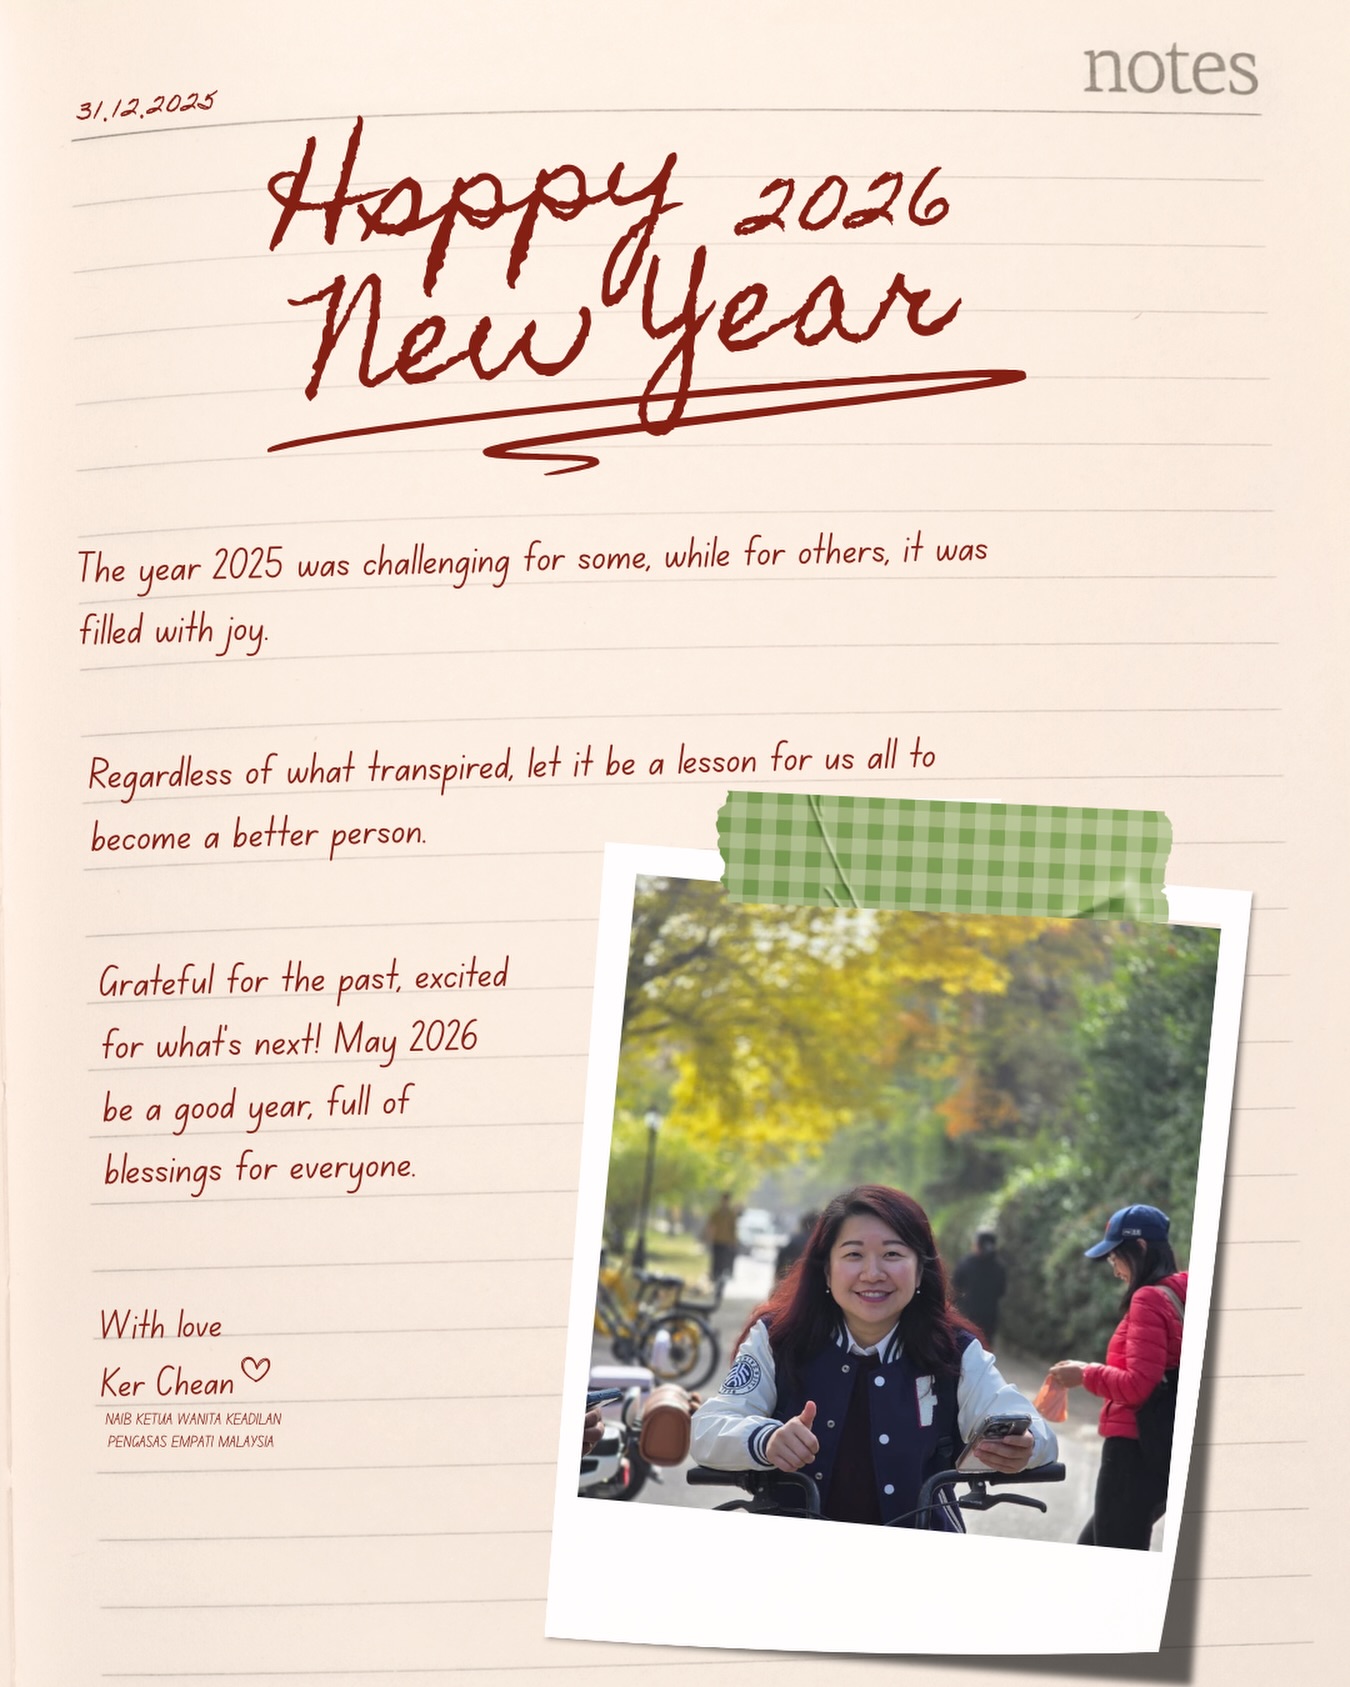 notes
31.12.2025
Happy 2026
New Year
The year 2025 was challenging for some, while for others, it was
filled with joy.
Regardless of what transpired, let it be a lesson for us all to
become a better person.
Grateful for the past, excited
for what's next! May 2026
be a good year, full of
blessings for everyone.
With love
Ker Chean
NAIB KETUA WANITA KEADILAN
PENGASAS EMPATI MALAYSIA